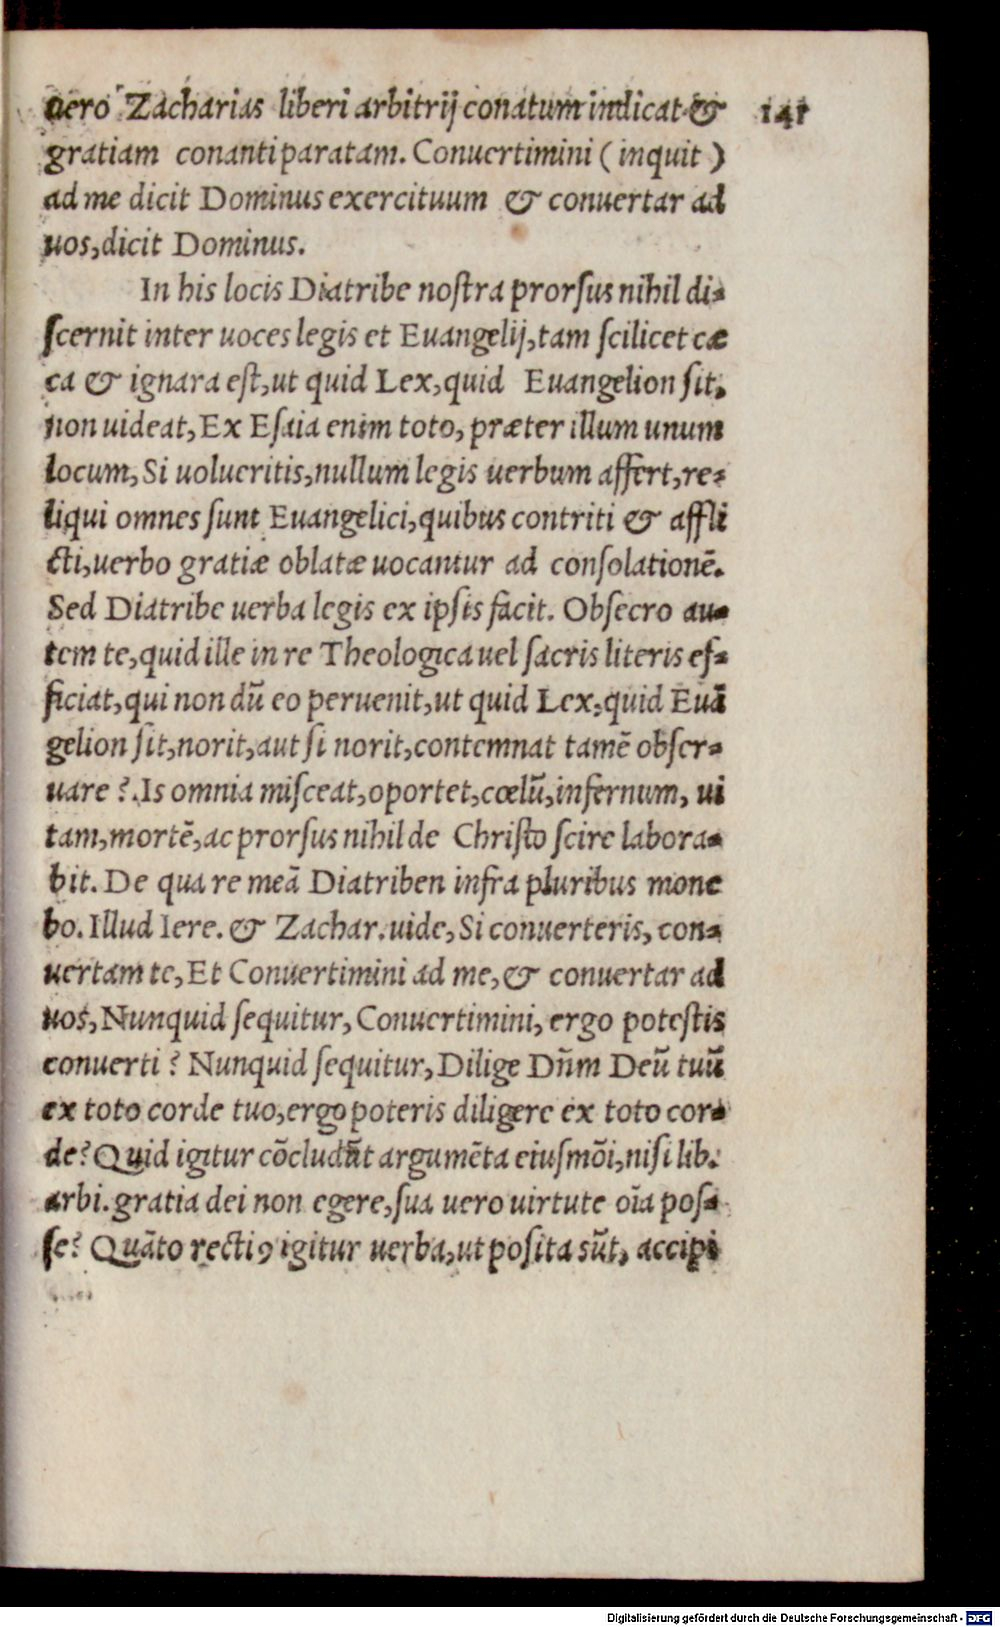 uero Zacharias liberi arbitrij conatum indicat &
141
gratiam conanti paratam. Conuertimini (inquit)
ad me dicit Dominus exercituum & conuertar ad
uos, dicit Dominus.
In his locis Diatribe noſtra prorſus nihil di-
ſcernit inter uoces legis et Euangelij, tam ſcilicet cæ
ca & ignara eſt, ut quid Lex, quid Euangelion ſit.
non uideat, Ex Eſaia enim toto, præter illum unum
locum, Si uolueritis, nullum legis uerbum affert, re-
liqui omnes ſunt Euangelici, quibus contriti & affli
cti, uerbo gratiæ oblatæ uocantur ad conſolationē.
Sed Diatribe uerba legis ex ipſis facit. Obſecro au-
tem te, quid ille in re Theologica uel ſacris literis ef-
ficiat, qui non dū eo peruenit, ut quid Lex, quid Euā
gelion ſit, norit, aut ſi norit, contemnat tamē obſer-
uare? Is omnia miſceat, oportet, cœlū, infernum, ui
tam, mortē, ac prorſus nihil de Chriſto ſcire labora-
bit. De qua re meā Diatriben infra pluribus mone
bo. Illud Iere. & Zachar. uide, Si conuerteris, con-
uertam te, Et Conuertimini ad me, & conuertar ad
uos, Nunquid ſequitur, Conuertimini, ergo poteſtis
conuerti? Nunquid ſequitur, Dilige Dn̄m Deū tuū
ex toto corde tuo, ergo poteris diligere ex toto cor-
de? Quid igitur cōcludūt argumēta eiuſmōi, niſi lib.
arbi. gratia dei non egere, ſua uero uirtute oīa poſ-
ſe? Quāto rectiꝯ igitur uerba, ut poſita sūt, accipi
Digitalisierung gefördert durch die Deutsche Forschungsgemeinschaft - DFG